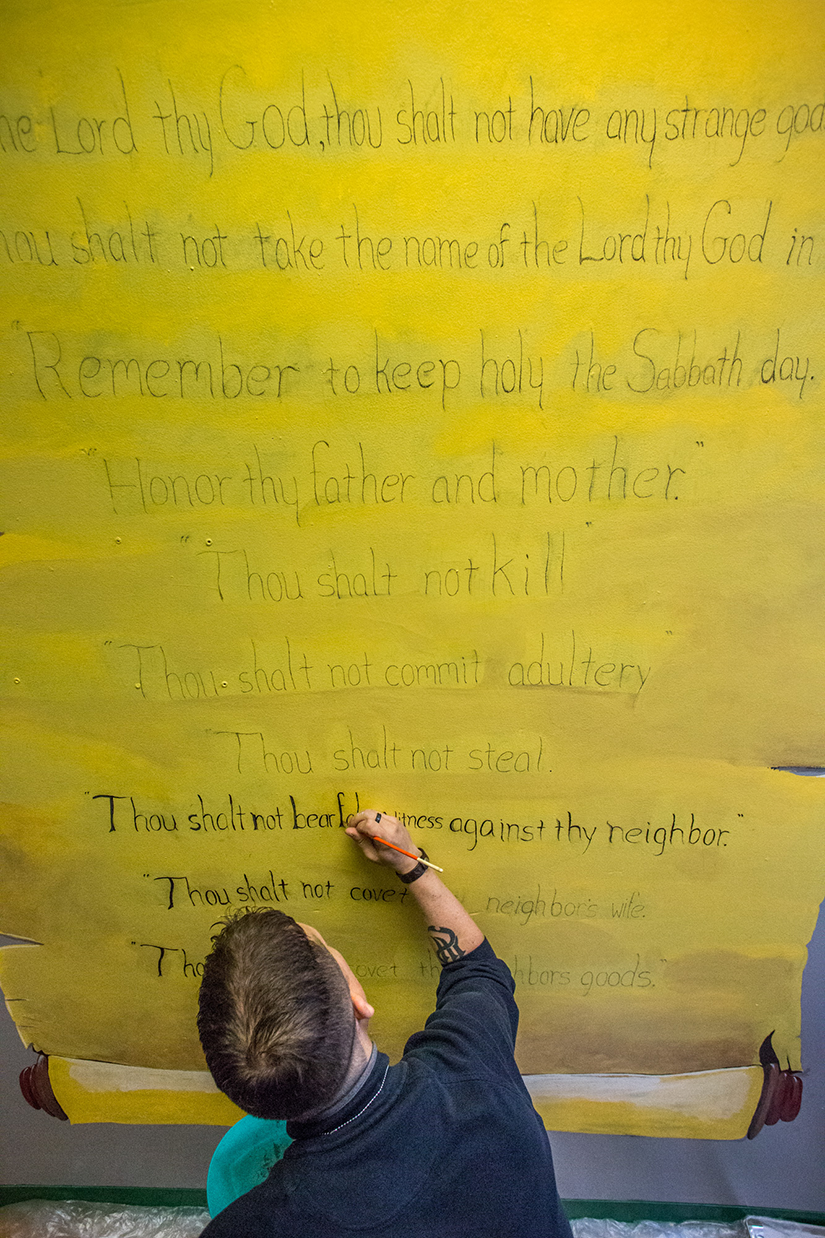 he Lord thy God, thou shalt not have any strange god
hou shalt not take the name of the Lord thy God in
"Remember to keep holy the Sabbath day.
"Honor thy father and mother."
"Thou shalt not kill"
"Thou shalt not commit adultery"
"Thou shalt not steal.
"Thou shalt not bear witness against thy neighbor."
"Thou shalt not covet neighbor's wife.
"Tho covet th hbors goods."